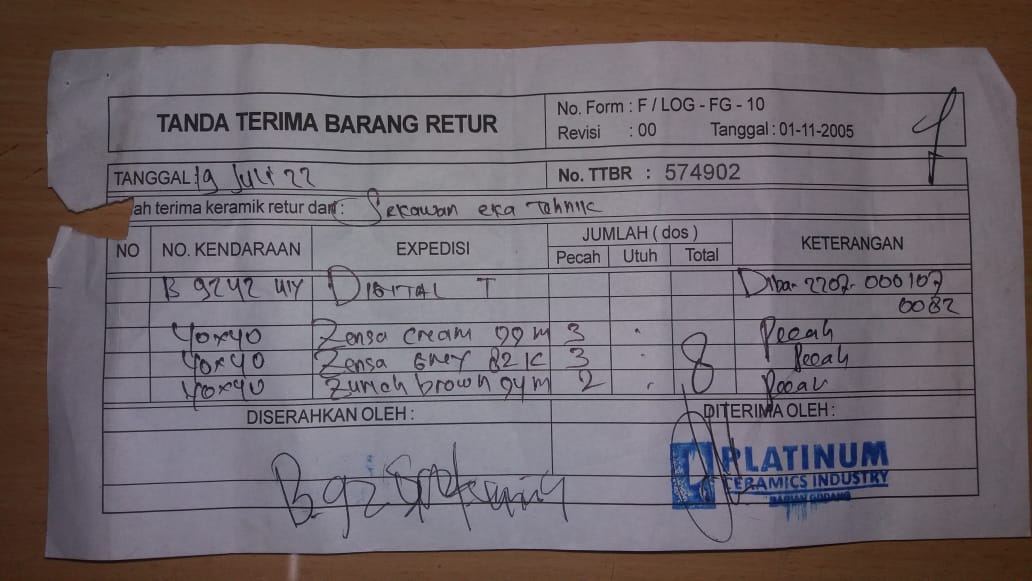 TANDA TERIMA BARANG RETUR
No. Form : F / LOG - FG - 10
Revisi : 00 Tanggal : 01-11-2005
TANGGAL 19 Juli 22
No. TTBR : 574902
ah terima keramik retur dari : Sekawan eka Tehnik
NO NO. KENDARAAN EXPEDISI JUMLAH ( dos ) KETERANGAN
Pecah Utuh Total
B 9242 UIY DIGITAL T 2207- 000107
0082
40x40 Zensa cream 99 m 3 Pecah
40x40 Zensa Grey 82 K 3 8 Pecah
40x40 brown 94 m 2 Pecah
DISERAHKAN OLEH : DITERIMA OLEH :
PLATINUM
CERAMICS INDUSTRY
BAGIAN GUDANG